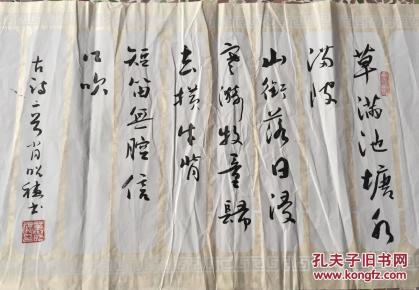 草滿池塘水
滿陂
山銜落日浸
寒漪牧童歸
去橫牛背
短笛無腔信
口吹
古詩一首 肖映梅书
孔夫子旧书网
www.kongfz.com